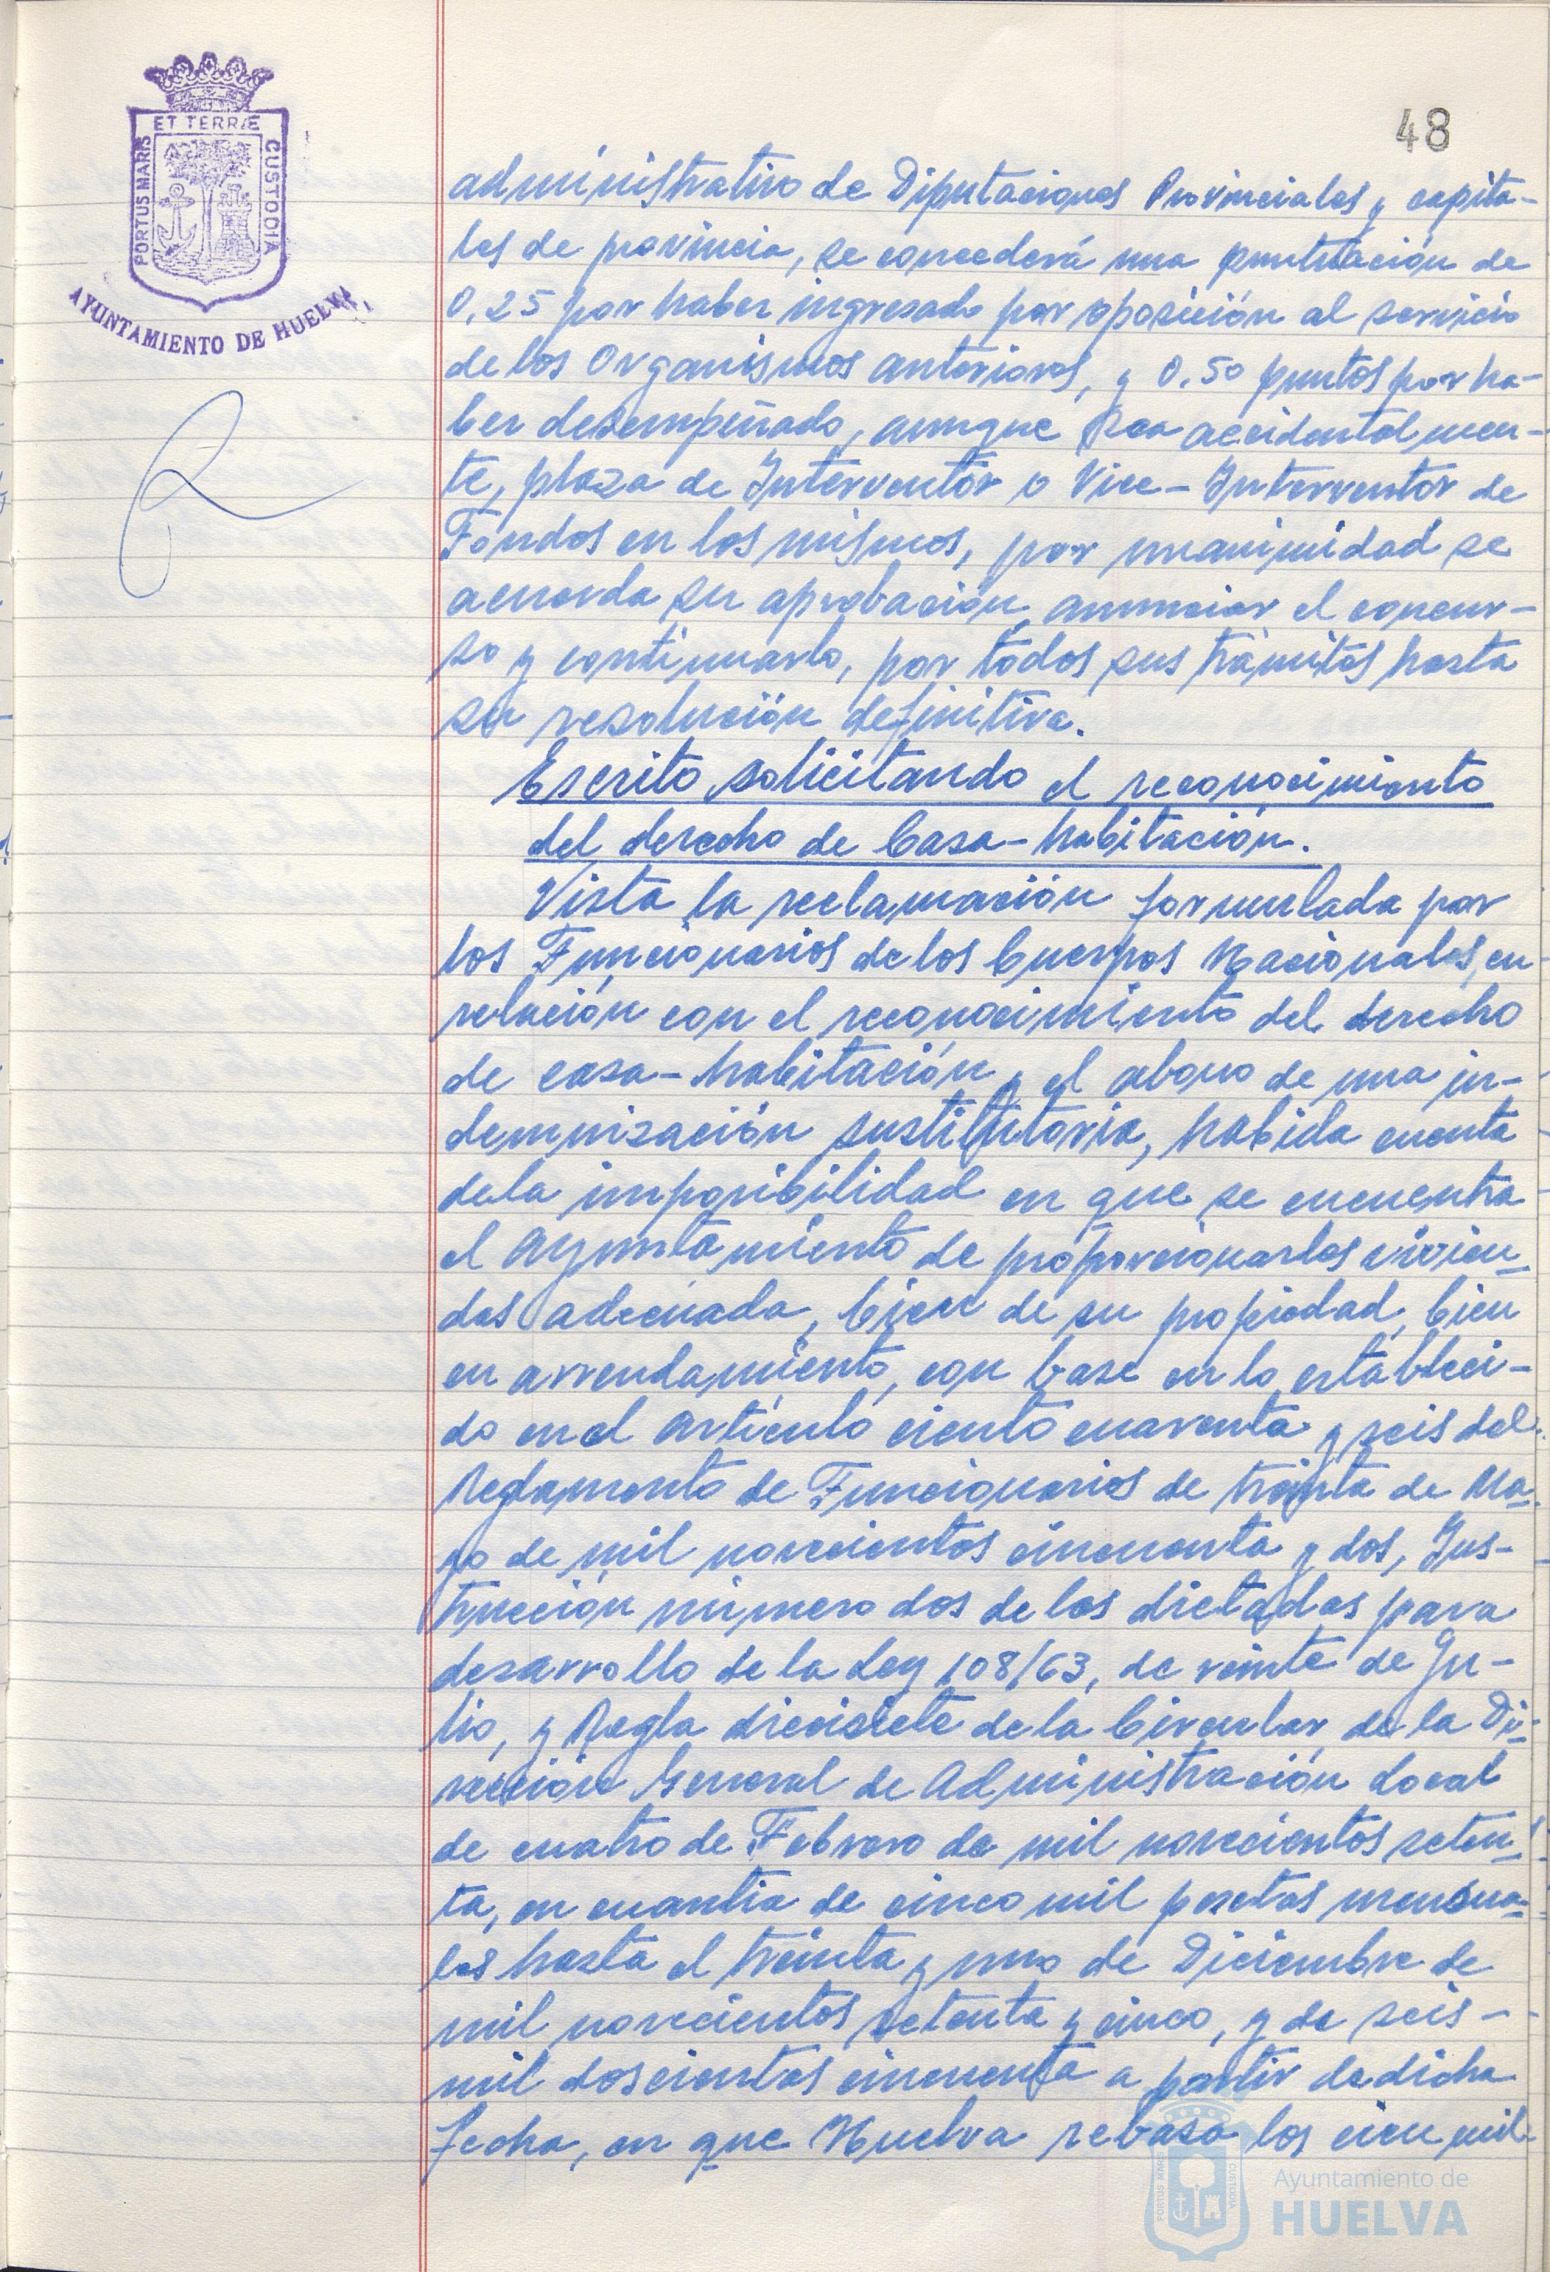 48
PORTUS MARIS ET TERRÆ CUSTODIA
AYUNTAMIENTO DE HUELVA
administrativo de Diputaciones Provinciales y capita-
les de provincia, se concederá una puntuación de
0,25 por haber ingresado por oposición al servicio
de los Organismos anteriores, y 0,50 puntos por ha-
ber desempeñado, aunque sea accidentalmen-
te, plaza de Interventor o Vice-Interventor de
Fondos en los mismos, por unanimidad se
acuerda su aprobación, anunciar el concur-
so y continuarlo, por todos sus trámites hasta
su resolución definitiva.
Escrito solicitando el reconocimiento
del derecho de Casa-habitación.
Vista la reclamación formulada por
los Funcionarios de los Cuerpos Nacionales, en
relación con el reconocimiento del derecho
de casa-habitación y el abono de una in-
demnización sustitutoria, habida cuenta
de la imposibilidad en que se encuentra
el Ayuntamiento de proporcionarles vivien-
das adecuada, bien de su propiedad, bien
en arrendamiento, con base en lo estableci-
do en el artículo ciento cuarenta y seis del
Reglamento de Funcionarios de treinta de Ma-
yo de mil novecientos cincuenta y dos, Ins-
trucción número dos de las dictadas para
desarrollo de la Ley 108/63, de veinte de Ju-
lio, y Regla diecisiete de la Circular de la Di-
rección General de Administración Local
de cuatro de Febrero de mil novecientos seten-
ta, en cuantía de cinco mil pesetas mensua-
les hasta el treinta y uno de Diciembre de
mil novecientos setenta y cinco, y de seis-
mil doscientas cincuenta a partir de dicha
fecha, en que Huelva rebasa los cien mil
Ayuntamiento de
HUELVA